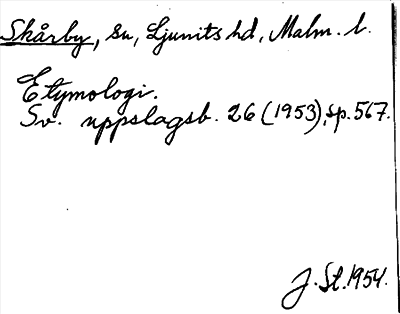 Skårby, sn, Ljunits hd, Malm. l.
Etymologi.
Sv. uppslagsb. 26 (1953), sp. 567.
J. St. 1954.